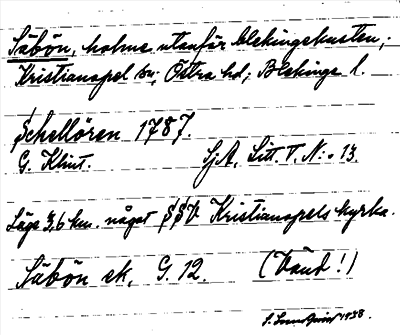 Säbön, holme utanför blekingekusten;
Kristianopel sn; Östra hd; Blekinge l.
Schellören 1787.
G. Klint. SjA, Litt. T. N:o 13.
Läge 3,6 km. något SSV Kristianopels kyrka.
Säbön ek. G. 12. (Vänd!)
S. 1938.